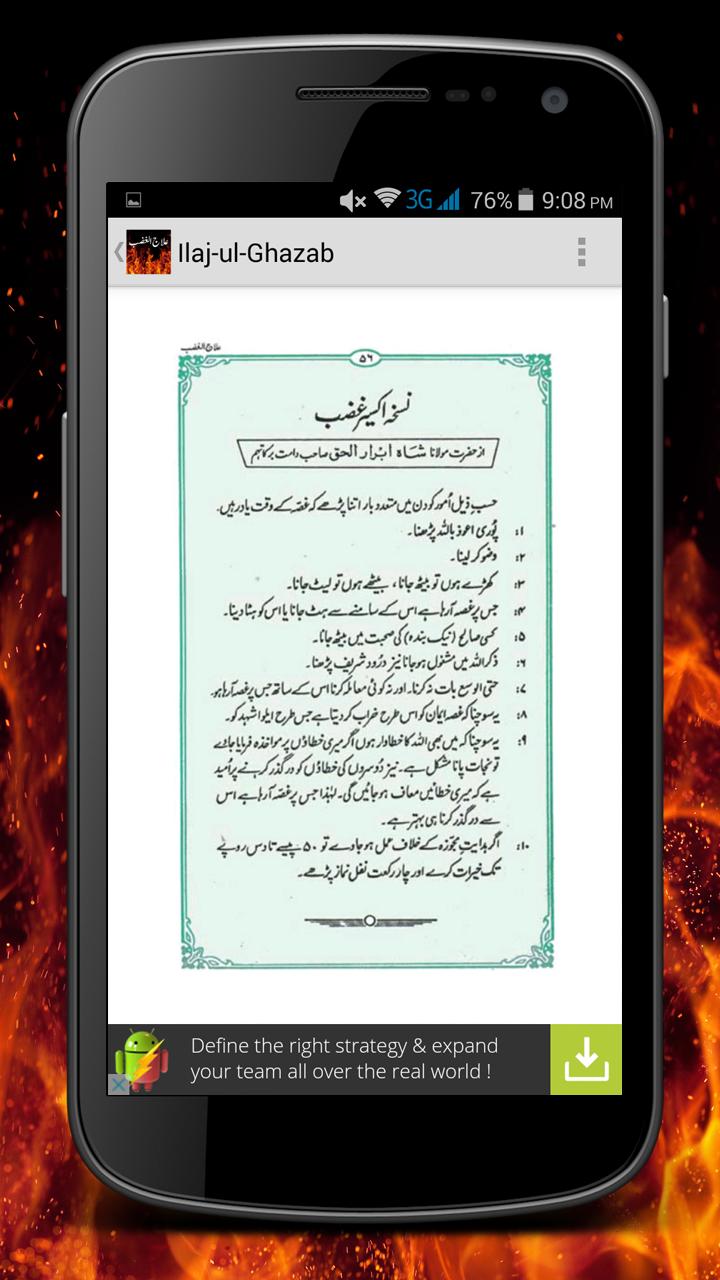 3G 76% 9:08 PM
علاج الغضب
Ilaj-ul-Ghazab
علاج الغضب
۵۶
نسخہ اکسیر غضب
از حضرت مولانا شاہ ابرار الحق صاحب دامت برکاتہم
حسب ذیل اُمور کو دن میں متعدد بار اتنا پڑھے کہ غصّہ کے وقت یاد رہیں۔
۱: پُوری اعوذ باللہ پڑھنا۔
۲: وضو کر لینا۔
۳: کھڑے ہوں تو بیٹھ جانا، بیٹھے ہوں تو لیٹ جانا۔
۴: جس پر غصہ آرہا ہے اس کے سامنے سے ہٹ جانا یا اس کو ہٹا دینا۔
۵: کسی صالح (نیک بندہ) کی صحبت میں بیٹھ جانا۔
۶: ذکر اللہ میں مشغول ہو جانا نیز درُود شریف پڑھنا۔
۷: حتی الوسع بات نہ کرنا۔ اور نہ کوئی معاملہ کرنا اس کے ساتھ جس پر غصہ آرہا ہو۔
۸: یہ سوچنا کہ غصہ ایمان کو اس طرح خراب کر دیتا ہے جس طرح ایلوا شہد کو۔
۹: یہ سوچنا کہ میں بھی اللہ کا خطاوار ہوں اگر میری خطاؤں پر مواخذہ فرمایا جاۓ
تو نجات پانا مشکل ہے۔ نیز دُوسروں کی خطاؤں کو درگذر کرنے پر اُمید
ہے کہ میری خطائیں معاف ہو جائیں گی۔ لہٰذا جس پر غصّہ آرہا ہے اس
سے درگذر کرنا ہی بہتر ہے۔
۱۰: اگر ہدایتِ مجوّزہ کے خلاف عمل ہو جاوے تو ۵۰ پیسے تا دس روپے
تک خیرات کرے اور چار رکعت نفل نماز پڑھے۔
Define the right strategy & expand
your team all over the real world !